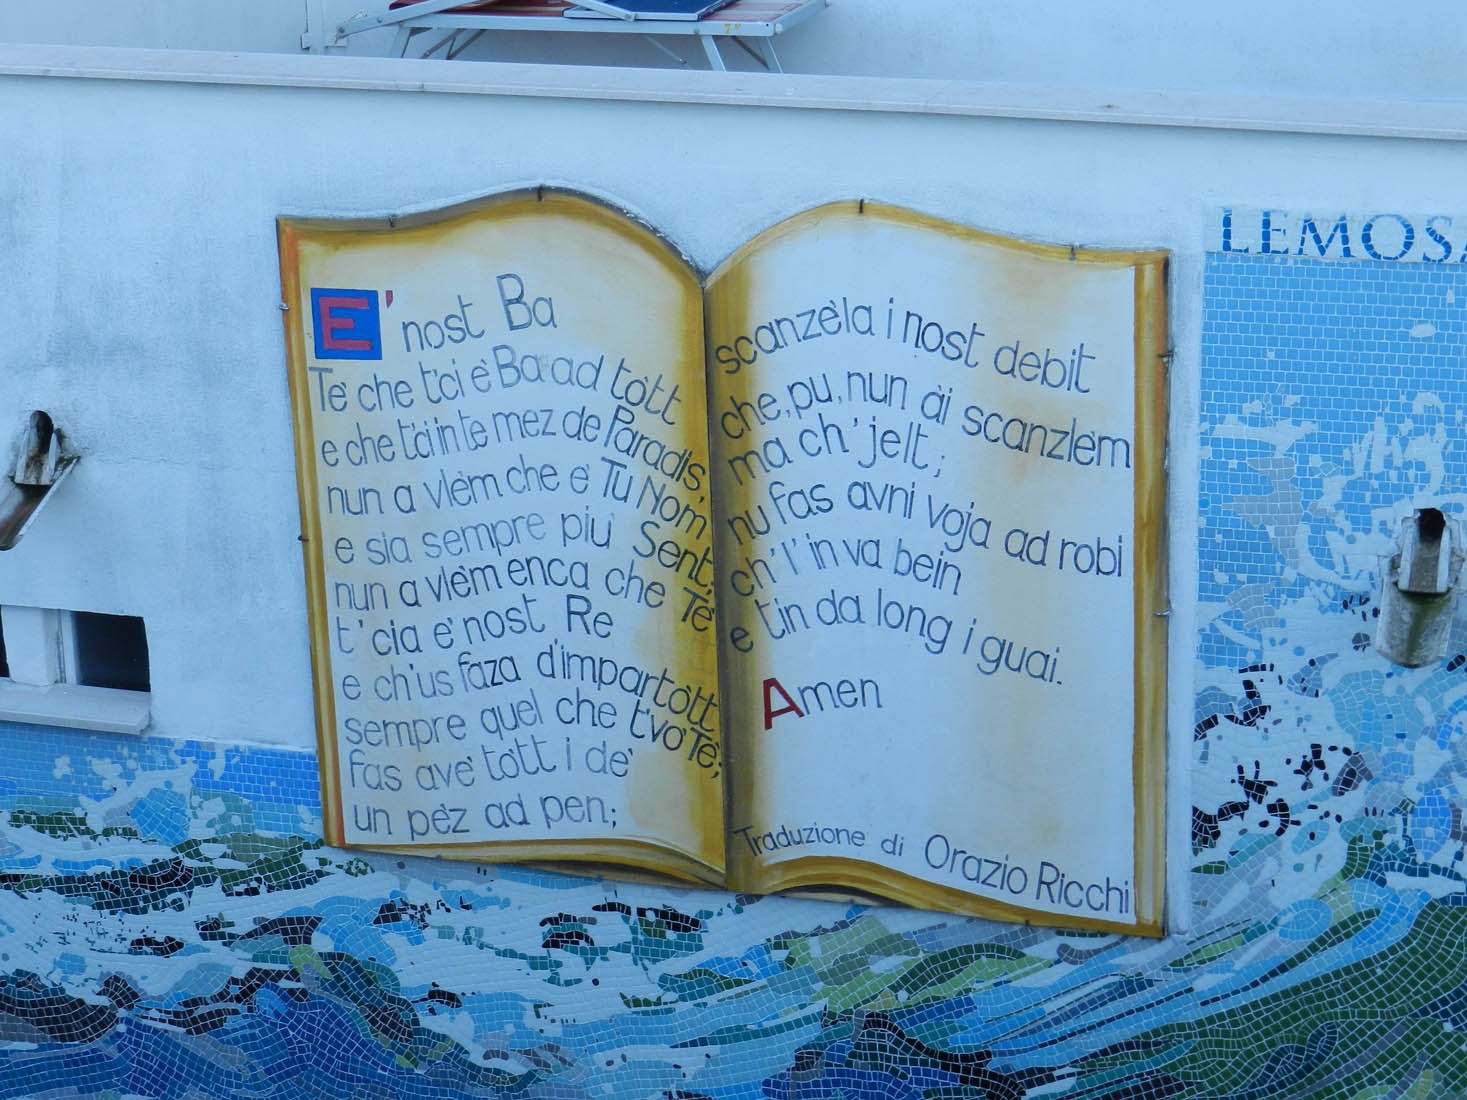 E' nost Ba
Te' che t'ci è Ba ad tòtt
e che t'ci in te mez de Paradis,
nun a vlèm che e' Tu Nom
e sia sempre piu' Sent;
nun a vlèm enca che Te'
t'cia e' nost Re
e ch'us faza d'impartòtt
sempre quel che t'vo' Te';
fas ave' tòtt i de'
un pèz ad pen;
scanzèla i nost debit
che, pu, nun ài scanzlèm
ma ch' jelt;
nu fas avni voja ad robi
ch'l'in va bein
e tin da long i guai.
Amen
Traduzione di Orazio Ricchi